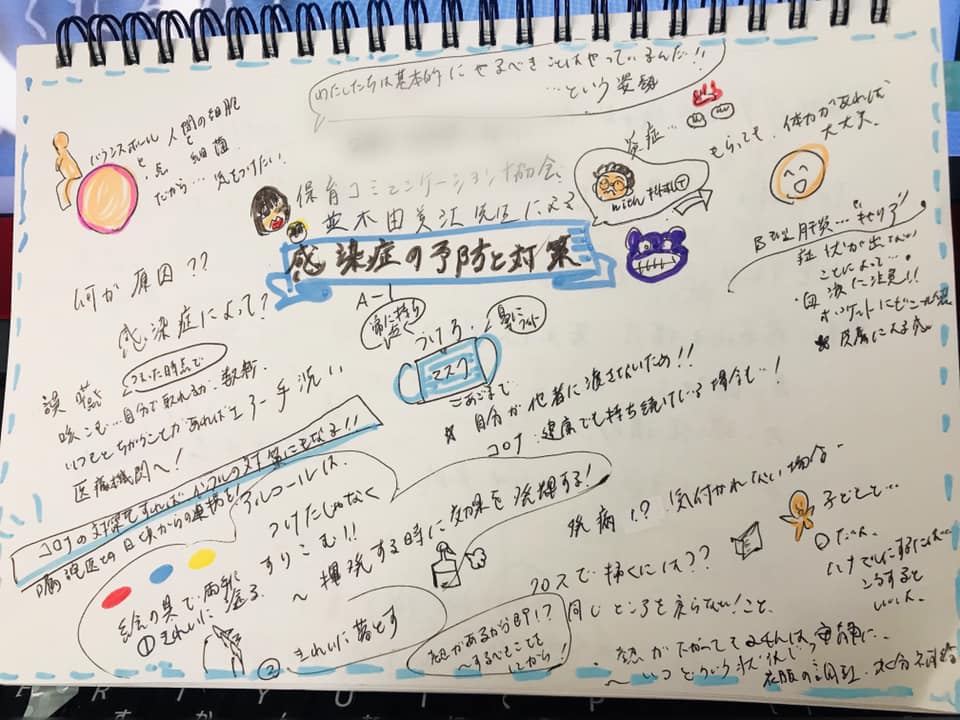 わたしたちは基本的にやるべきことはやっているんだ!!
…という姿勢
バランスボール
と
人間の細胞
と
点
細菌
だから…気をつけたい
保育コミュニケーション協会
並木由美江先生による
感染症の予防と対策
炎症…
with
もらっても、体力があれば
大丈夫
B型肝炎…"キャリア"
症状が出てない
ことによって…
・血液に注意!!
ポケットにビニール袋
何が原因??
感染症によって?
A-1
常に持ち
つけろ
鼻に
マスク
あごまで
自分が他者に渡さないため!!
コロナ…健康でも持ち続けている場合も…!
誤嚥
ついた時点で
咳こむ…自分で取れるが…数新
いつもとちがうことがあれば
手洗い
医療機関へ!
コロナの対策をすれば、インフルの対策にもなる!!
嘱託医との日頃からの連携を!
アルコールは、
つけたじゃなく
すりこむ!!
〜揮発する時に効果を発揮する!
絵の具で両手に
①きれいに塗る
②きれいに落とす
疾病!? 気付かれない場合
クロスで拭くには??
同じところを戻らない!こと
熱があるから即!?
〜するべきことも
子どもと…
・熱が下がってても4んは、安静に、
〜いつどういう状況じゃ
衣服の調整、水分補給